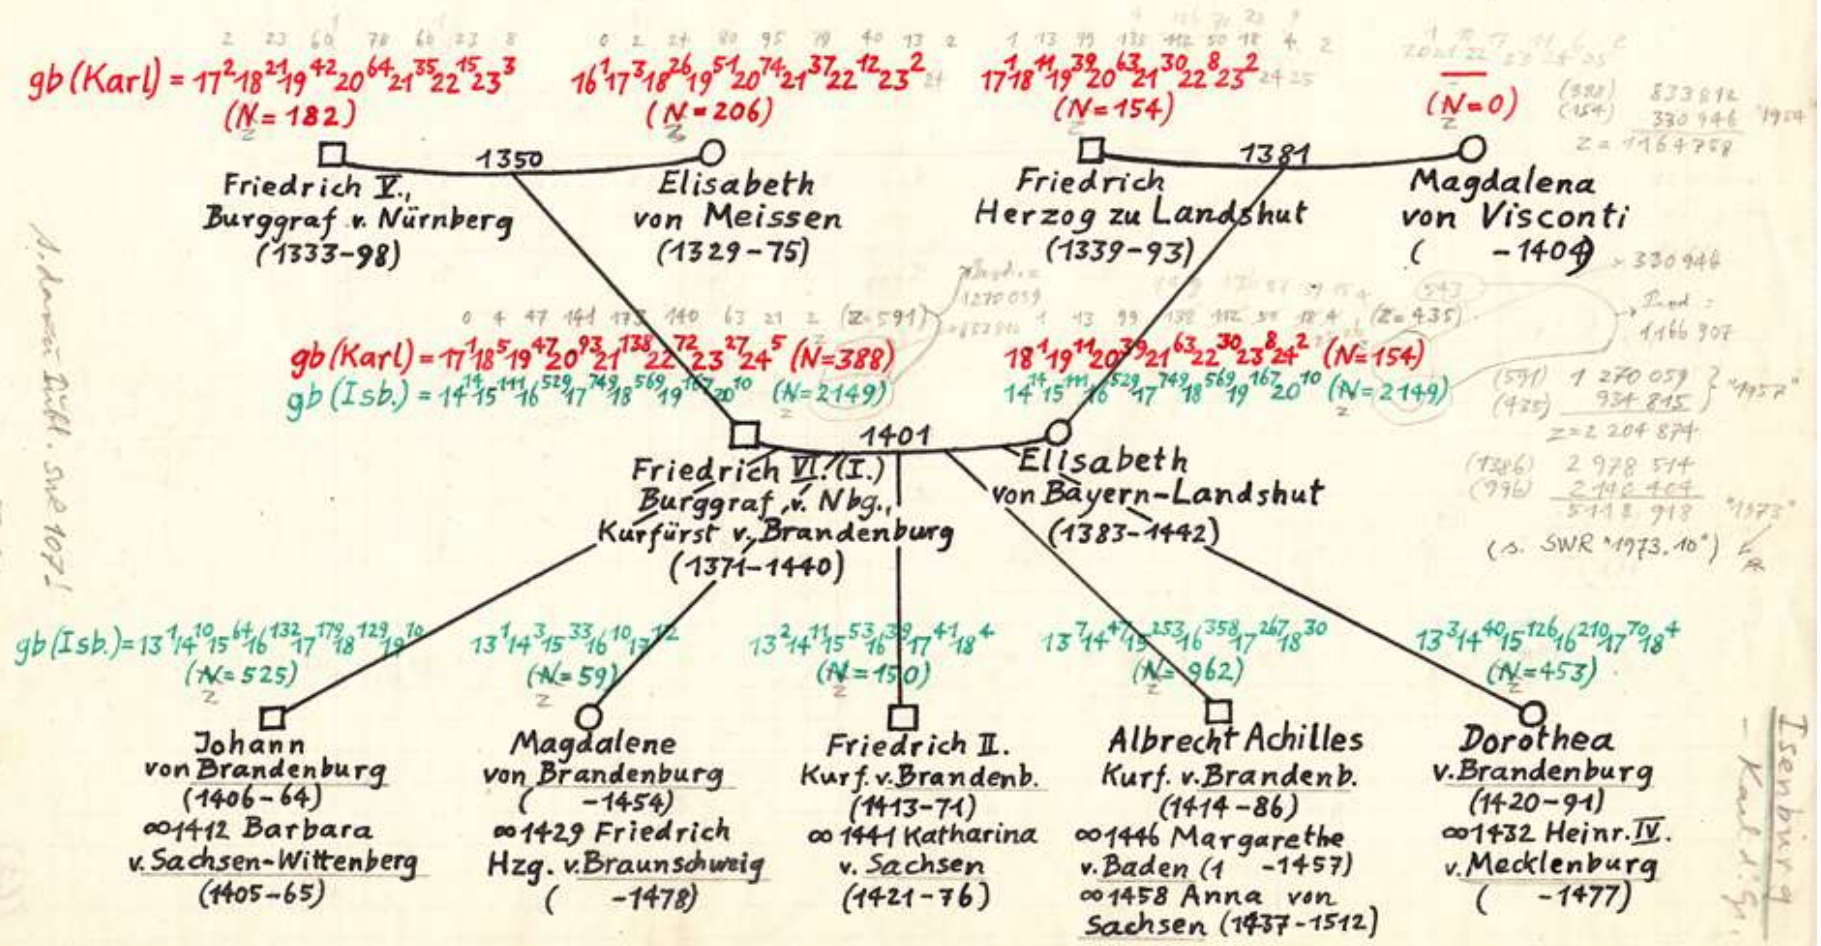 2 23 60 78 60 23 8
0 2 24 80 95 79 40 13 2
1 13 99 138 112 50 18 4 2
gb (Karl) = 17² 18²¹ 19⁴² 20⁶⁴ 21³⁵ 22¹⁵ 23³
16¹ 17³ 18²⁶ 19⁵¹ 20⁷⁴ 21³⁷ 22¹² 23² 24
17¹ 18¹¹ 19³⁹ 20⁶³ 21³⁰ 22⁸ 23² 24 25
(N=182)
z
(N=206)
z
(N=154)
z
(N=0)
z
(388) 833812
(154) 330946 "1954"
z=1164758
1350
1381
Friedrich V.,
Burggraf v. Nürnberg
(1333-98)
Elisabeth
von Meissen
(1329-75)
Friedrich
Herzog zu Landshut
(1339-93)
Magdalena
von Visconti
( -1404)
330946
Prod. =
1270059
543
Prod. =
1166907
0 4 47 141 173 140 63 21 2 (z=591)
1 13 99 138 112 50 18 4 (z=435)
gb (Karl) = 17¹ 18⁵ 19⁴⁷ 20⁹³ 21¹³⁸ 22⁷² 23²⁷ 24⁵ (N=388)
18¹ 19¹¹ 20³⁹ 21⁶³ 22³⁰ 23⁸ 24² (N=154)
gb (Isb.) = 14¹⁴ 15¹¹¹ 16⁵²⁹ 17⁷⁴⁹ 18⁵⁶⁹ 19¹⁶⁷ 20¹⁰ (N=2149)
z
14¹⁴ 15¹¹¹ 16⁵²⁹ 17⁷⁴⁹ 18⁵⁶⁹ 19¹⁶⁷ 20¹⁰ (N=2149)
z
(591) 1 270 059
(435) 934 815 "1957"
z=2 204 874
(1386) 2 978 514
(996) 2 140 404
5 118 918 "1973"
(s. SWR "1973.10")
1401
Friedrich VI. (I.)
Burggraf v. Nbg.,
Kurfürst v. Brandenburg
(1371-1440)
Elisabeth
von Bayern-Landshut
(1383-1442)
gb (Isb.) = 13¹ 14¹⁰ 15⁶⁴ 16¹³² 17¹⁷⁹ 18¹²⁹ 19¹⁰
(N=525)
z
13¹ 14³ 15³³ 16¹⁰ 17¹²
(N=59)
z
13² 14¹¹ 15⁵³ 16³⁹ 17⁴¹ 18⁴
(N=150)
z
13⁷ 14⁴⁷ 15²⁵³ 16³⁵⁸ 17²⁶⁷ 18³⁰
(N=962)
z
13³ 14⁴⁰ 15¹²⁶ 16²¹⁰ 17⁷⁰ 18⁴
(N=453)
z
Johann
von Brandenburg
(1406-64)
∞1412 Barbara
v. Sachsen-Wittenberg
(1405-65)
Magdalene
von Brandenburg
( -1454)
∞1429 Friedrich
Hzg. v. Braunschweig
( -1478)
Friedrich II.
Kurf. v. Brandenb.
(1413-71)
∞1441 Katharina
v. Sachsen
(1421-76)
Albrecht Achilles
Kurf. v. Brandenb.
(1414-86)
∞1446 Margarethe
v. Baden (1 -1457)
∞1458 Anna von
Sachsen (1437-1512)
Dorothea
v. Brandenburg
(1420-91)
∞1432 Heinr. IV.
v. Mecklenburg
( -1477)
SWR 107!
Isenburg
- Karl d. Gr.